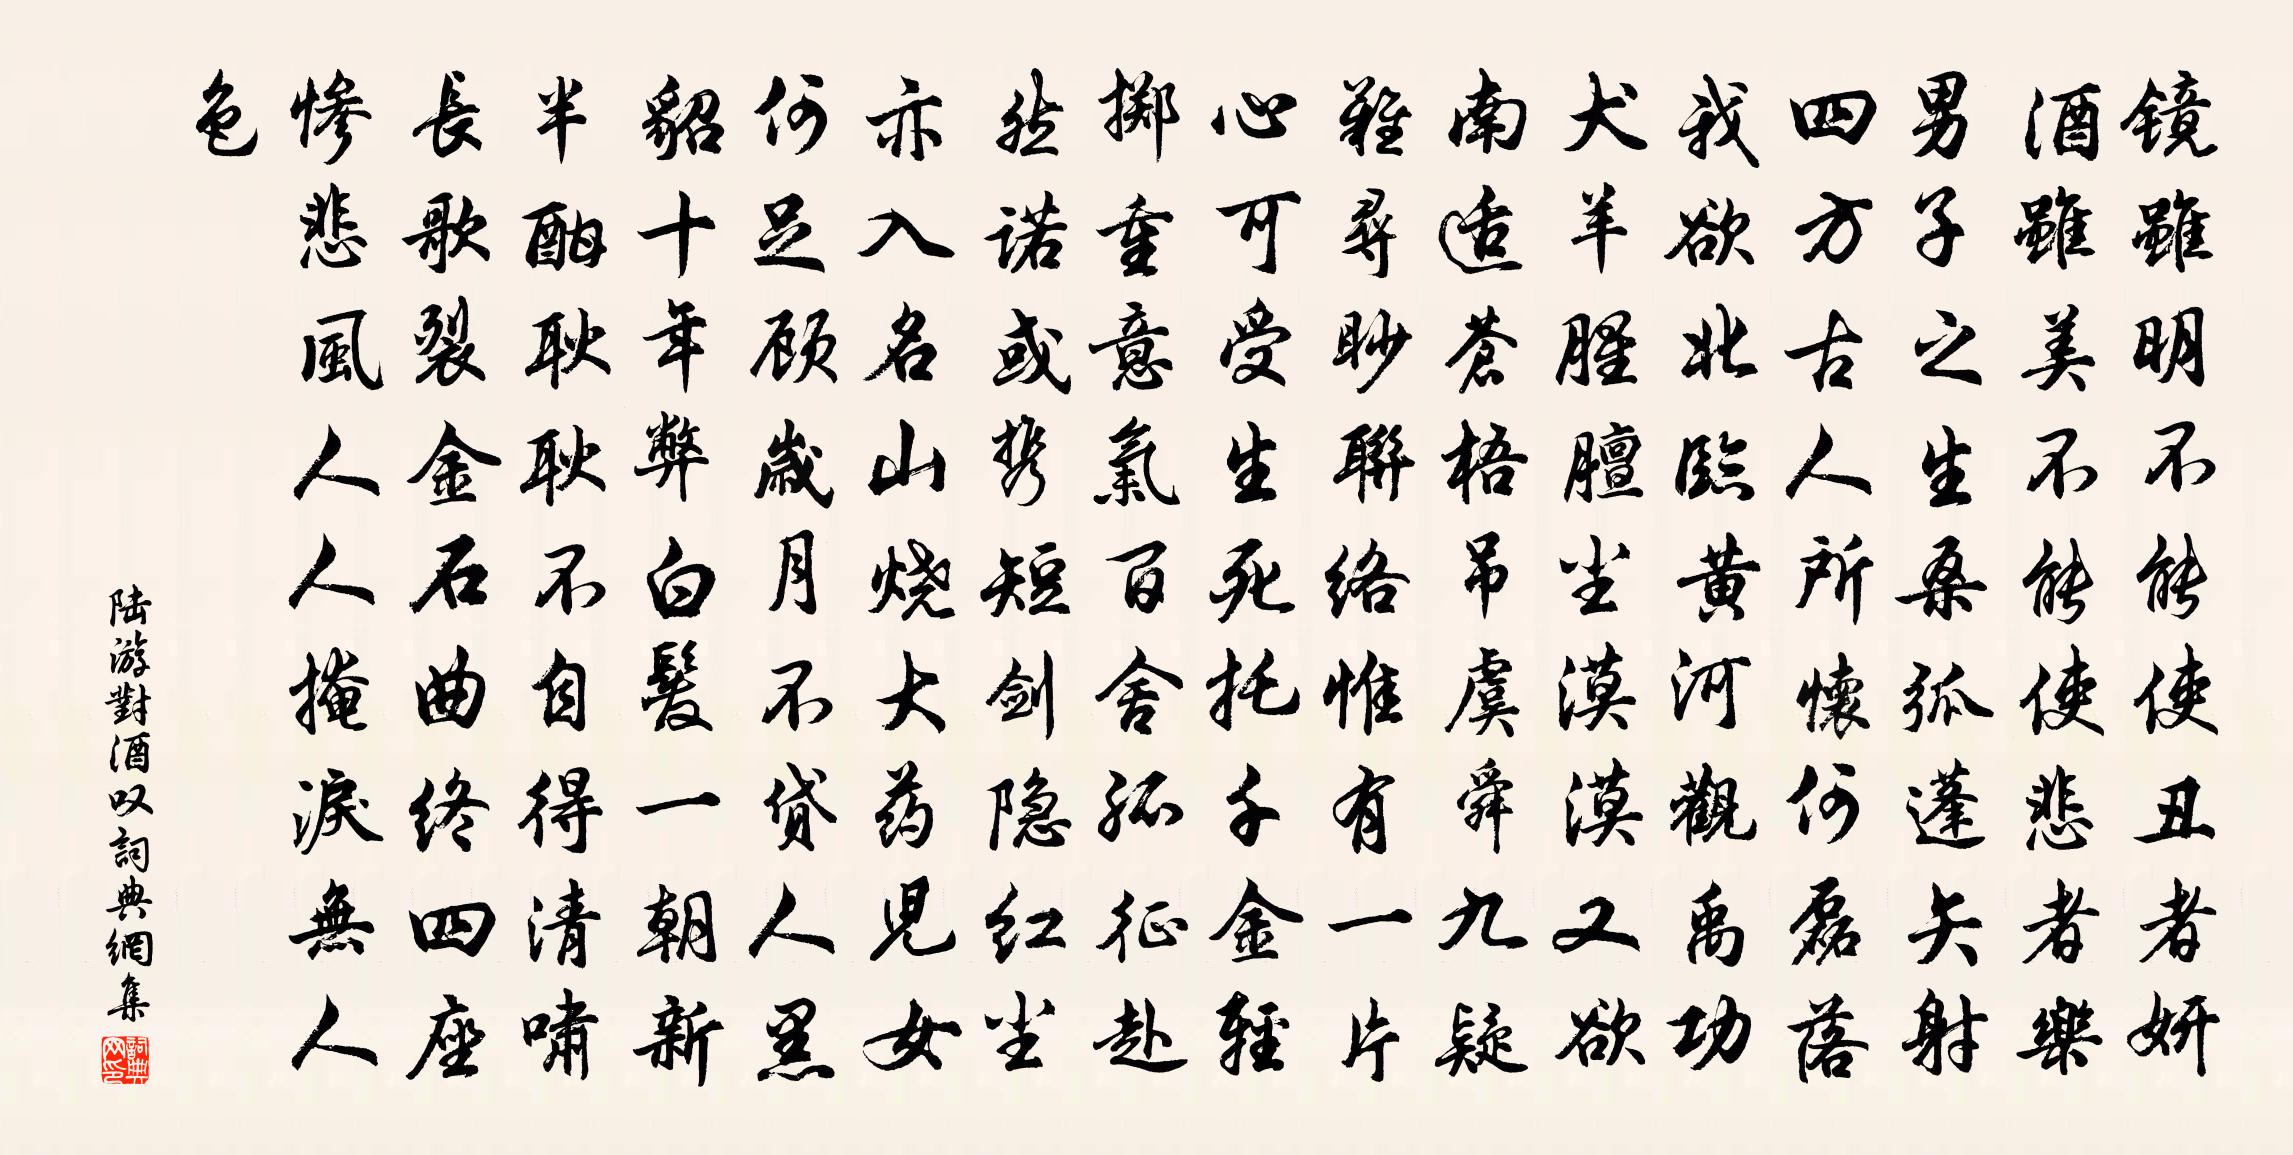 镜雖明不能使丑者妍
酒雖美不能使悲者樂
男子之生桑弧蓬矢射
四方古人所懷何磊落
我欲北臨黄河觀禹功
犬羊腥膻尘漠漠又欲
南适蒼梧吊虞舜九疑
難尋眇聯络惟有一片
心可受生死托千金輕
擲重意氣百舍孤征赴
然诺或携短剑隐红尘
亦入名山烧大药児女
何足顾歲月不贷人黑
貂十年弊白髮一朝新
半酣耿耿不自得清嘯
長歌裂金石曲终四座
慘悲風人人掩淚無人
色
陆游對酒叹詞典網集
詞典网印